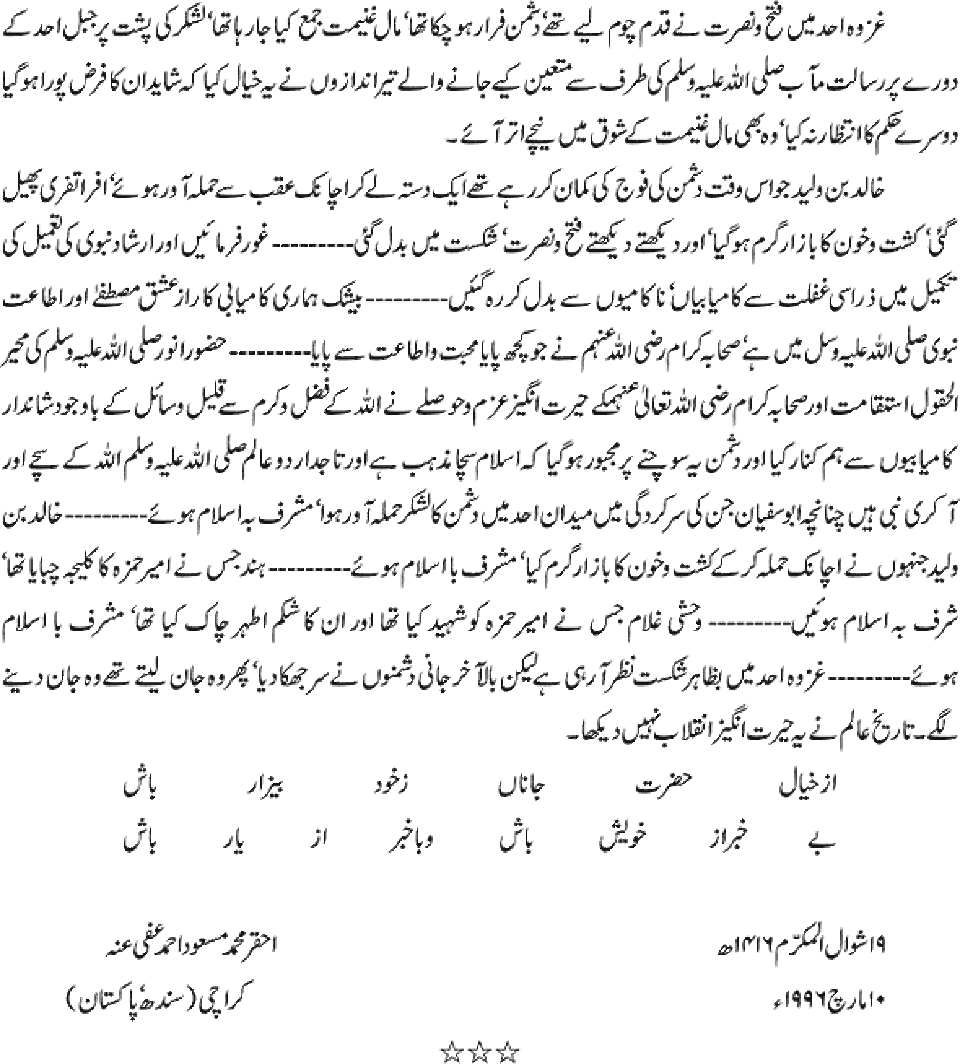 غزوہ احد میں فتح و نصرت نے قدم چوم لیے تھے‘ دشمن فرار ہو چکا تھا‘ مال غنیمت جمع کیا جا رہا تھا‘ لشکر کی پشت پر جبل احد کے
دورے پر رسالت مآب صلی اللہ علیہ وسلم کی طرف سے متعین کیے جانے والے تیر اندازوں نے یہ خیال کیا کہ شاید ان کا فرض پورا ہو گیا
دوسرے حکم کا انتظار نہ کیا‘ وہ بھی مال غنیمت کے شوق میں نیچے اتر آئے۔
خالد بن ولید جو اس وقت دشمن کی فوج کی کمان کر رہے تھے ایک دستہ لے کر اچانک عقب سے حملہ آور ہوئے‘ افراتفری پھیل
گئی‘ کشت و خون کا بازار گرم ہو گیا‘ اور دیکھتے دیکھتے فتح و نصرت‘ شکست میں بدل گئی--------- غور فرمائیں اور ارشاد نبوی کی تعمیل کی
تکمیل میں ذرا سی غفلت سے کامیابیاں‘ ناکامیوں سے بدل کر رہ گئیں--------- بیشک ہماری کامیابی کا راز عشق مصطفےٰ اور اطاعت
نبوی صلی اللہ علیہ وسل میں ہے‘ صحابہ کرام رضی اللہ عنہم نے جو کچھ پایا محبت و اطاعت سے پایا--------- حضور انور صلی اللہ علیہ وسلم کی محیر
الحقول استقامت اور صحابہ کرام رضی اللہ تعالیٰ عنہمکے حیرت انگیز عزم و حوصلے نے اللہ کے فضل و کرم سے قلیل وسائل کے باوجود شاندار
کامیابیوں سے ہم کنار کیا اور دشمن یہ سوچنے پر مجبور ہو گیا کہ اسلام سچا مذہب ہے اور تاجدار دو عالم صلی اللہ علیہ وسلم اللہ کے سچے اور
آکری نبی ہیں چنانچہ ابو سفیان جن کی سرکردگی میں میدان احد میں دشمن کا لشکر حملہ آور ہوا‘ مشرف بہ اسلام ہوئے--------- خالد بن
ولید جنہوں نے اچانک حملہ کر کے کشت و خون کا بازار گرم کیا‘ مشرف با اسلام ہوئے--------- ہند جس نے امیر حمزہ کا کلیجہ چبایا تھا‘
شرف بہ اسلام ہوئیں--------- وحشی غلام جس نے امیر حمزہ کو شہید کیا تھا اور ان کا شکم اطہر چاک کیا تھا‘ مشرف با اسلام
ہوئے--------- غزوہ احد میں بظاہر شکست نظر آ رہی ہے لیکن بالآخر جانی دشمنوں نے سر جھکا دیا‘ پھر وہ جان لیتے تھے وہ جان دینے
لگے۔ تاریخ عالم نے یہ حیرت انگیز انقلاب نہیں دیکھا۔
از خیال حضرت جاناں زخود بیزار باش
بے خبر از خویش باش وباخبر از یار باش
۱۹ شوال المکرّم ۱۴۱۶ھ احقر محمد مسعود احمد عفی عنہ
۱۰ مارچ ۱۹۹۶ء کراچی (سندھ‘ پاکستان)
☆☆☆